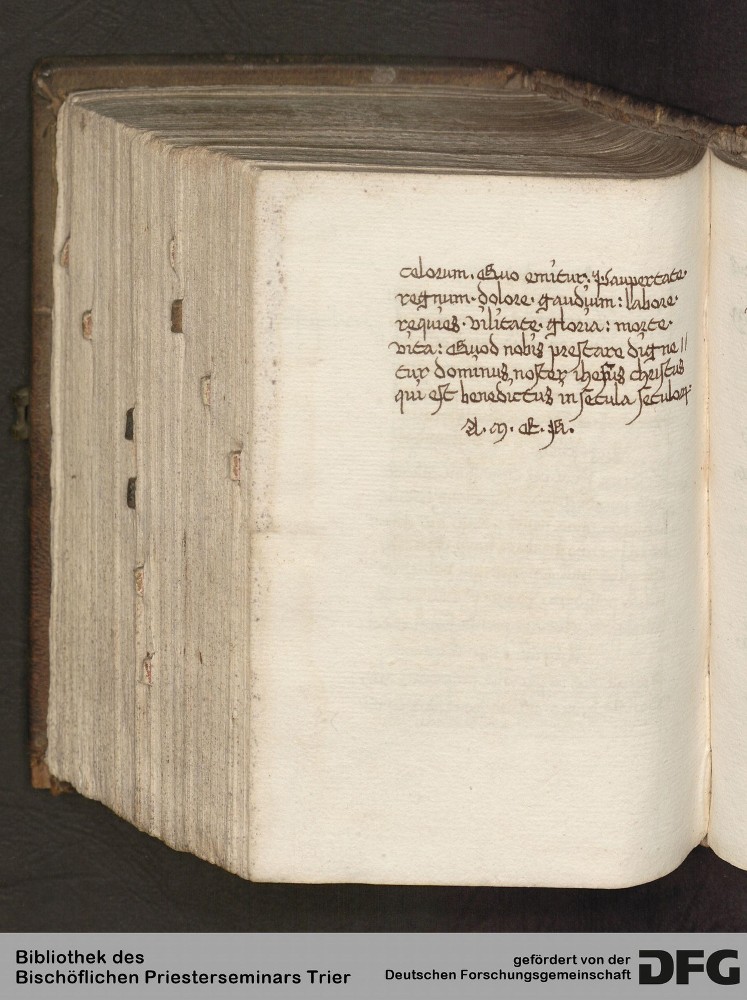 celorum. Quo emitur: Paupertate
regnum. dolore. gaudium: labore.
requies. vilitate. gloria: morte.
vita: Quod nobis prestare digne //
tur dominus noster ihesus christus
qui est benedictus in secula seculorꝫ.
A. M. E. N.
Bibliothek des
Bischöflichen Priesterseminars Trier
gefördert von der
Deutschen Forschungsgemeinschaft
DFG